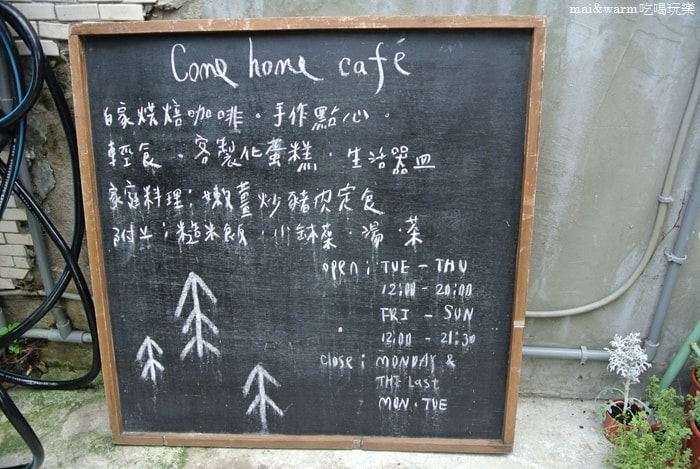 mai&warm吃喝玩樂
Come home café
自家烘焙咖啡。手作點心。
輕食。客製化蛋糕.生活器皿
家庭料理:嫩薑炒豬肉定食
附上:糙米飯.小缽菜.湯.茶
open: TUE - THU
12:00 - 20:00
FRI - SUN
12:00 - 21:30
close: MONDAY &
THE Last
MON.TUE